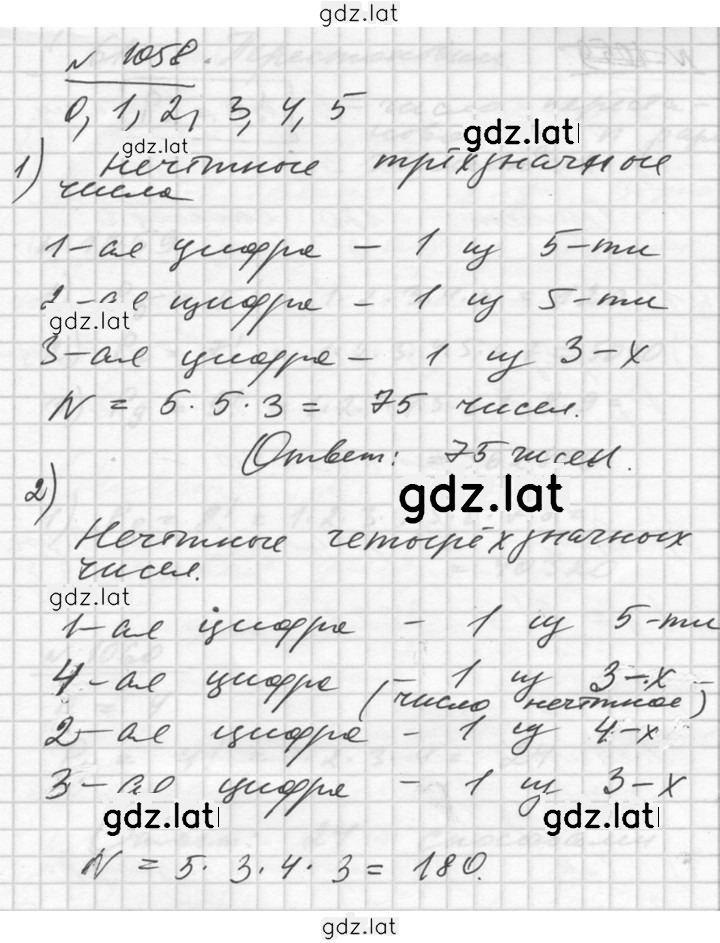 gdz.lat
№ 1058.
0, 1, 2, 3, 4, 5
gdz.lat
gdz.lat
1) нечётные трёхзначные
числа
1-ая цифра – 1 из 5-ти
2-ая цифра – 1 из 5-ти
gdz.lat
3-ая цифра – 1 из 3-х
N = 5 · 5 · 3 = 75 чисел.
Ответ: 75 чисел.
2)
gdz.lat
Нечётные четырёхзначных
чисел.
gdz.lat
1-ая цифра – 1 из 5-ти
4-ая цифра – 1 из 3-х
(число нечётное)
2-ая цифра – 1 из 4-х
3-ая цифра – 1 из 3-х
gdz.lat
gdz.lat
N = 5 · 3 · 4 · 3 = 180.
gdz.lat